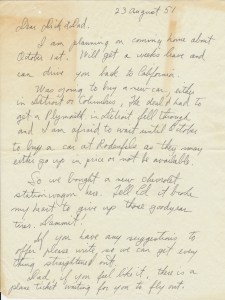 23 August 51
Dear Dick & Dad.
I am planning on coming home about
October 1st. Will get a weeks leave and
can drive you back to California.
Was going to buy a new car, either
in Detroit or Columbus, the deal I had to
get a Plymouth in Detroit fell through
and I am afraid to wait until October
to buy a car at as they may
either go up in price or not be available.
So we bought a new chevrolet
stationwagon here. Tell Ed it broke
my heart to give up those goodyear
tires. Dammit!
If you have any suggestions to
offer please write, so we can get every
thing straightened out.
Dad, if you feel like it, there is a
plane ticket waiting for you to fly out.